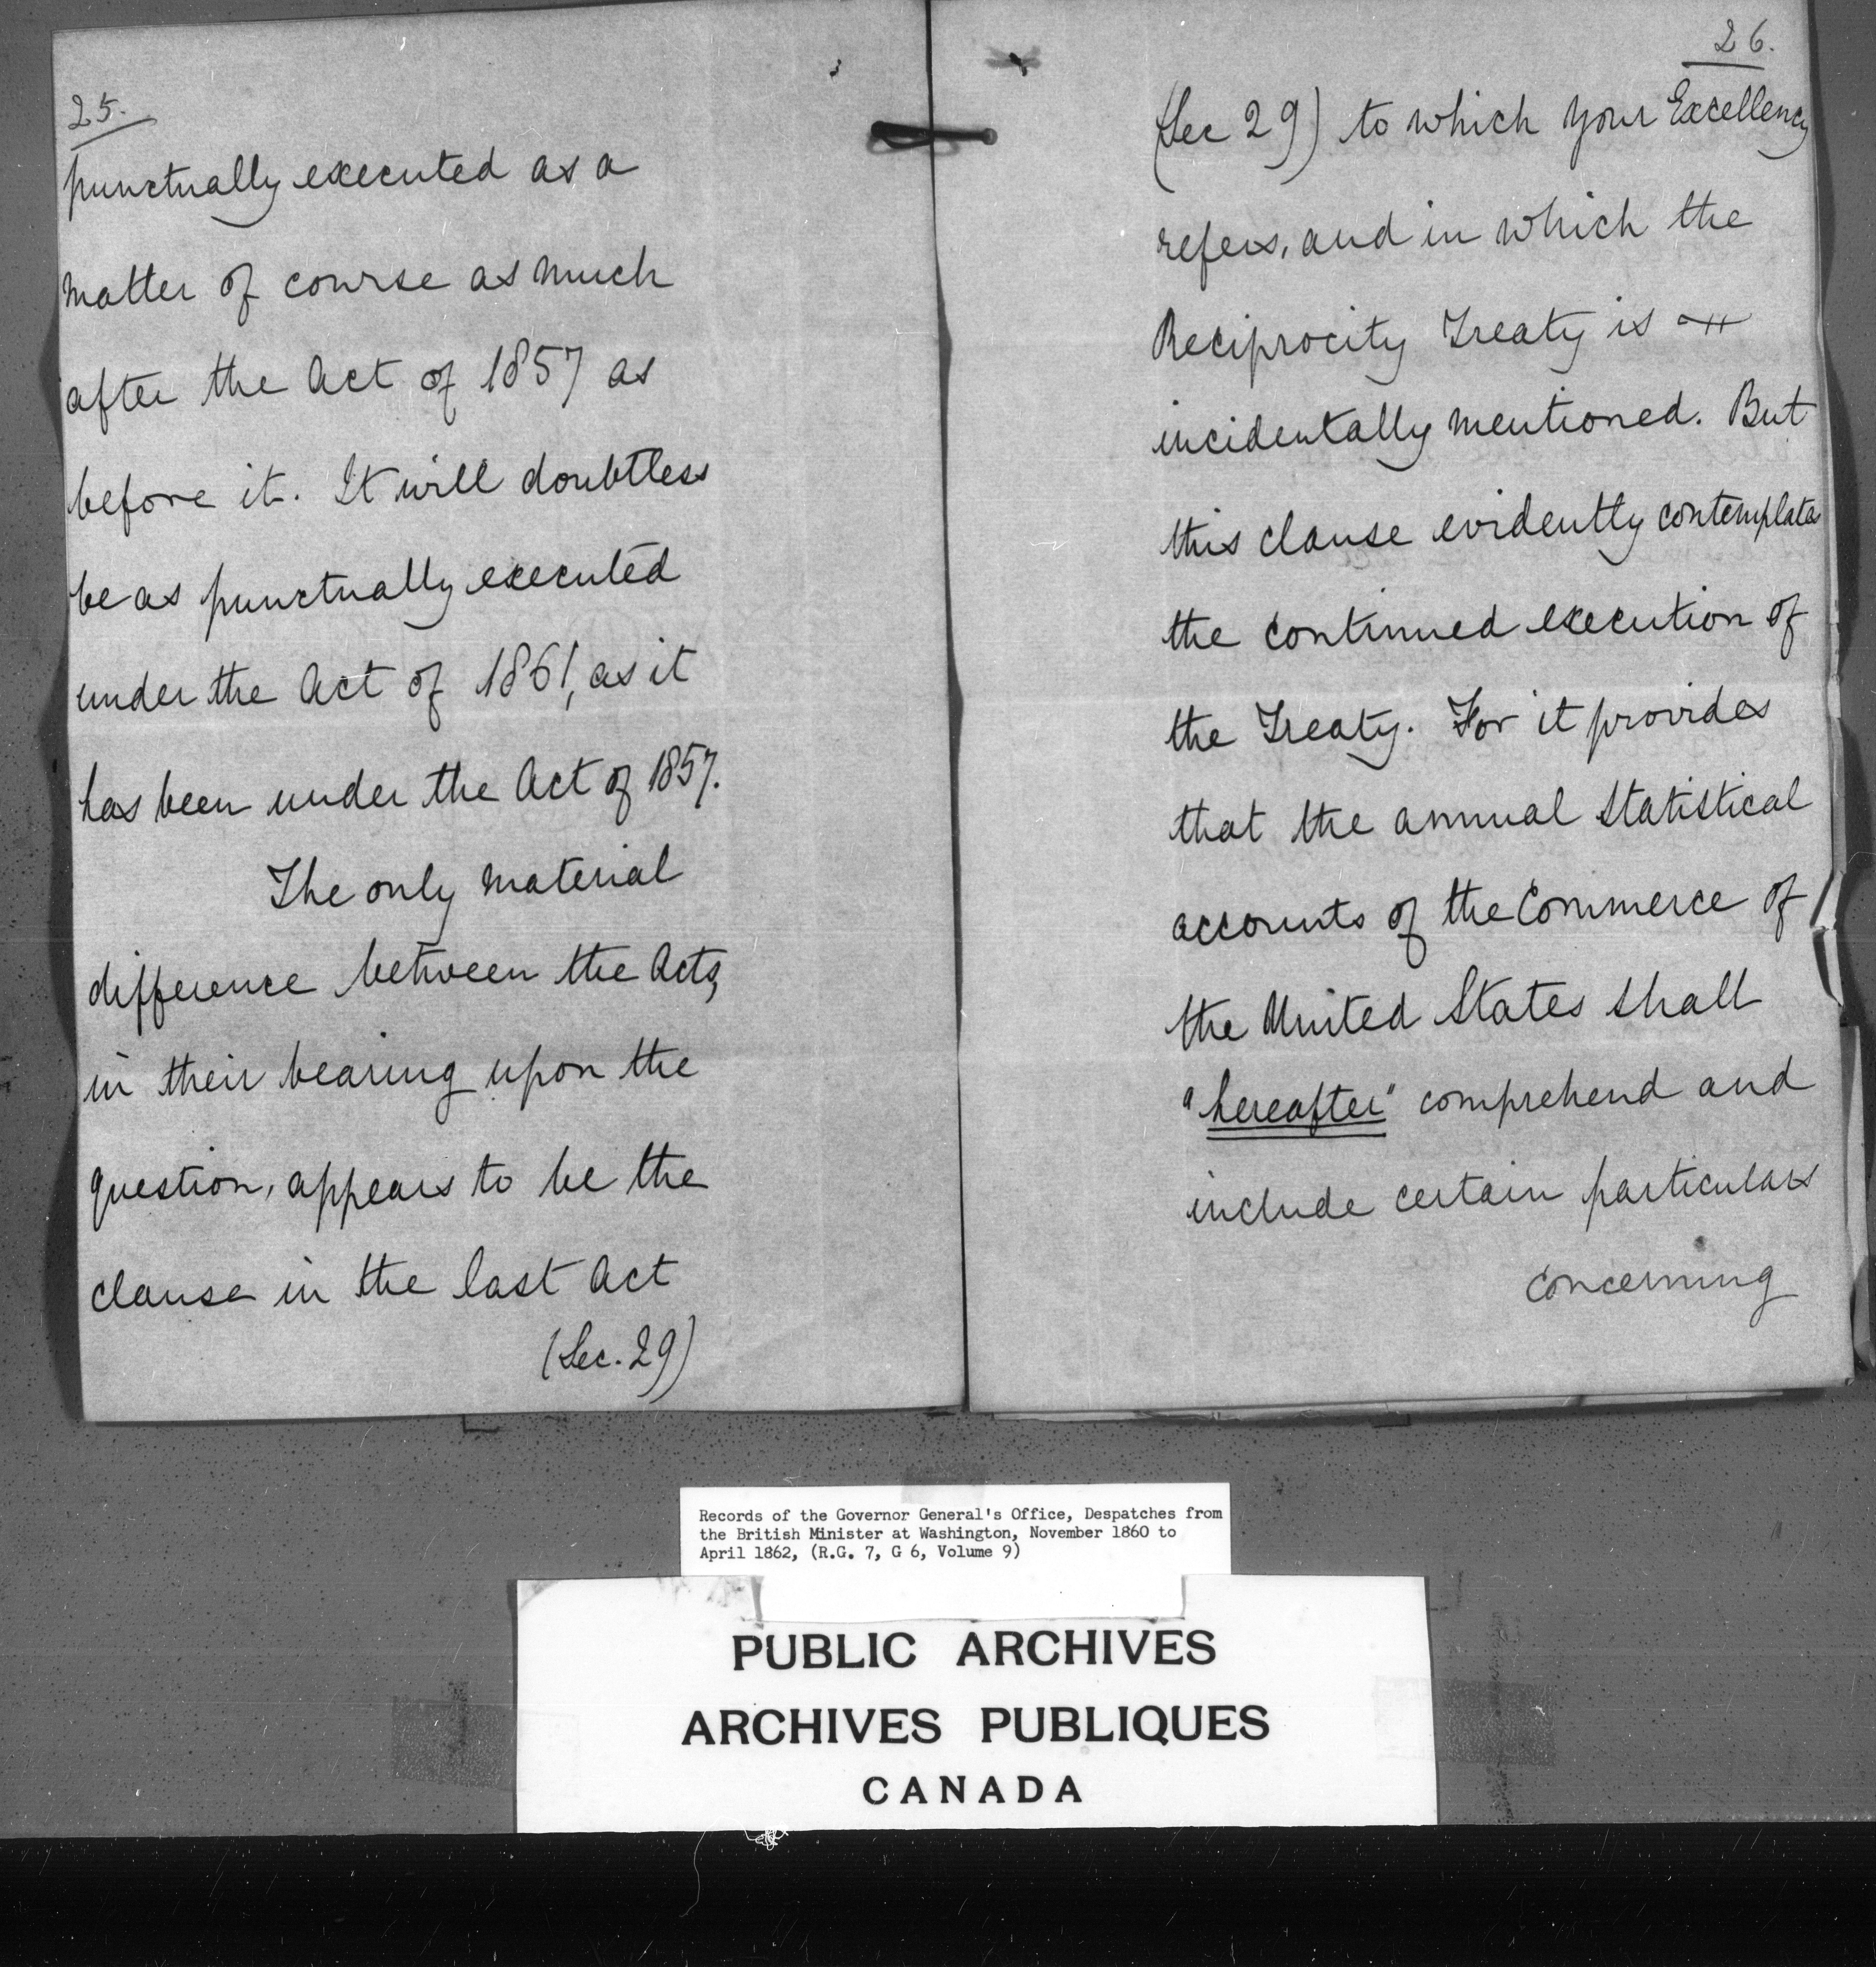 25.
punctually executed as a
matter of course as much
after the Act of 1857 as
before it. It will doubtless
be as punctually executed
under the Act of 1861, as it
has been under the Act of 1857.
The only material
difference between the Acts,
in their bearing upon the
question, appears to be the
clause in the last Act
(Sec. 29)
26.
(Sec 29) to which Your Excellency
refers, and in which the
Reciprocity Treaty is
incidentally mentioned. But
this clause evidently contemplates
the continued execution of
the Treaty. For it provides
that the annual statistical
accounts of the Commerce of
the United States shall
"hereafter" comprehend and
include certain particulars
concerning
Records of the Governor General's Office, Despatches from
the British Minister at Washington, November 1860 to
April 1862, (R.G. 7, G 6, Volume 9)
PUBLIC ARCHIVES
ARCHIVES PUBLIQUES
CANADA